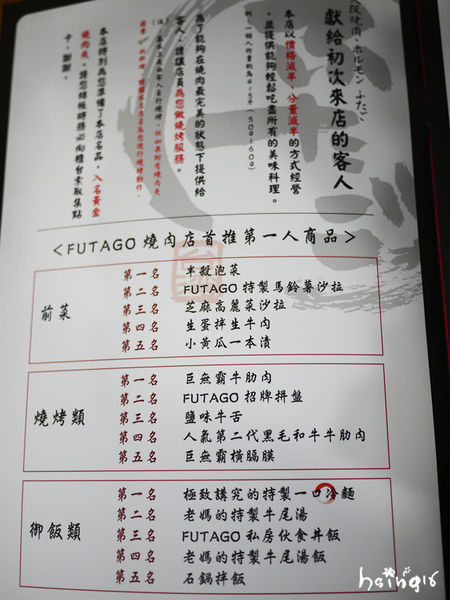 大阪焼肉・ホルモン ふたご
獻給初次來店的客人
本店以價格減半、分量減半的方式經營
，並提供能夠輕鬆吃盡所有的美味料理。
為了能夠在燒肉最完美的狀態下提供給
客人，請讓店員為您做燒烤服務。
本店特別為您準備了本店名品，入名黃金
燒肉夾。請您結帳時務必向櫃台索取集點
卡。謝謝。
<FUTAGO 燒肉店首推第一人商品>
前菜
第一名 半殺泡菜
第二名 FUTAGO 特製馬鈴薯沙拉
第三名 芝麻高麗菜沙拉
第四名 生蛋拌生牛肉
第五名 小黃瓜一本漬
燒烤類
第一名 巨無霸牛肋肉
第二名 FUTAGO 招牌拼盤
第三名 鹽味牛舌
第四名 人氣第二代黑毛和牛牛肋肉
第五名 巨無霸橫膈膜
御飯類
第一名 極致講究的特製一口冷麵
第二名 老媽的特製牛尾湯
第三名 FUTAGO 私房伙食丼飯
第四名 老媽的特製牛尾湯飯
第五名 石鍋拌飯
hsing16